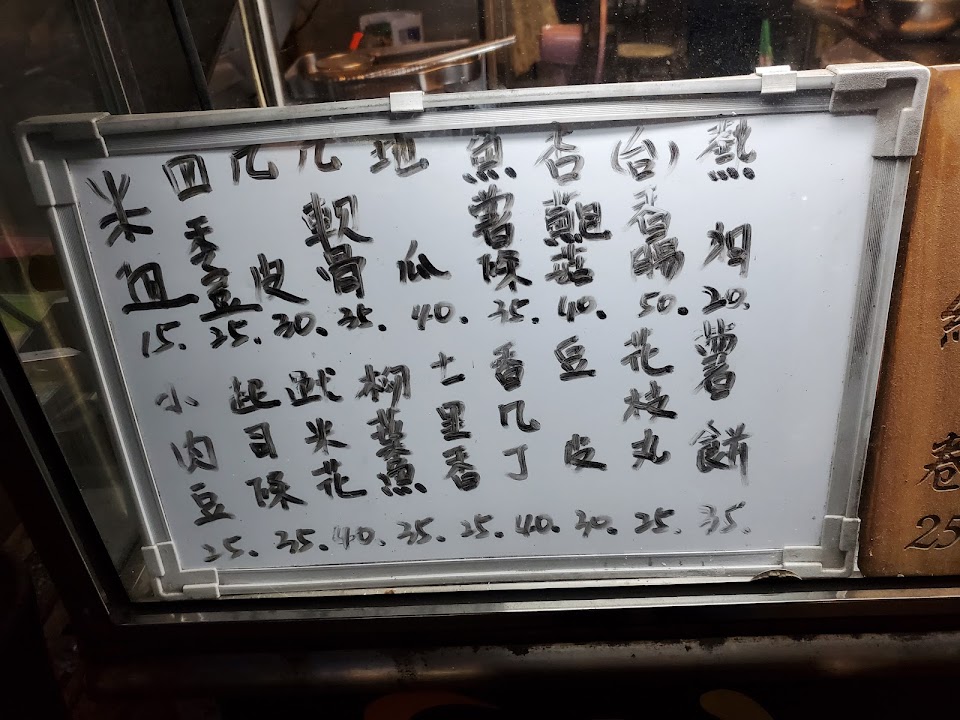 熱狗 20.
(台)香腸 50.
杏鮑菇 40.
魚薯條 35.
地瓜 40.
几軟骨 35.
几皮 30.
四季豆 25.
米血 15.
薯餅 35.
花枝丸 25.
豆皮 30.
香几丁 40.
七里香 25.
柳葉魚 35.
魷米花 40.
起司條 35.
小肉豆 25.
卷
25